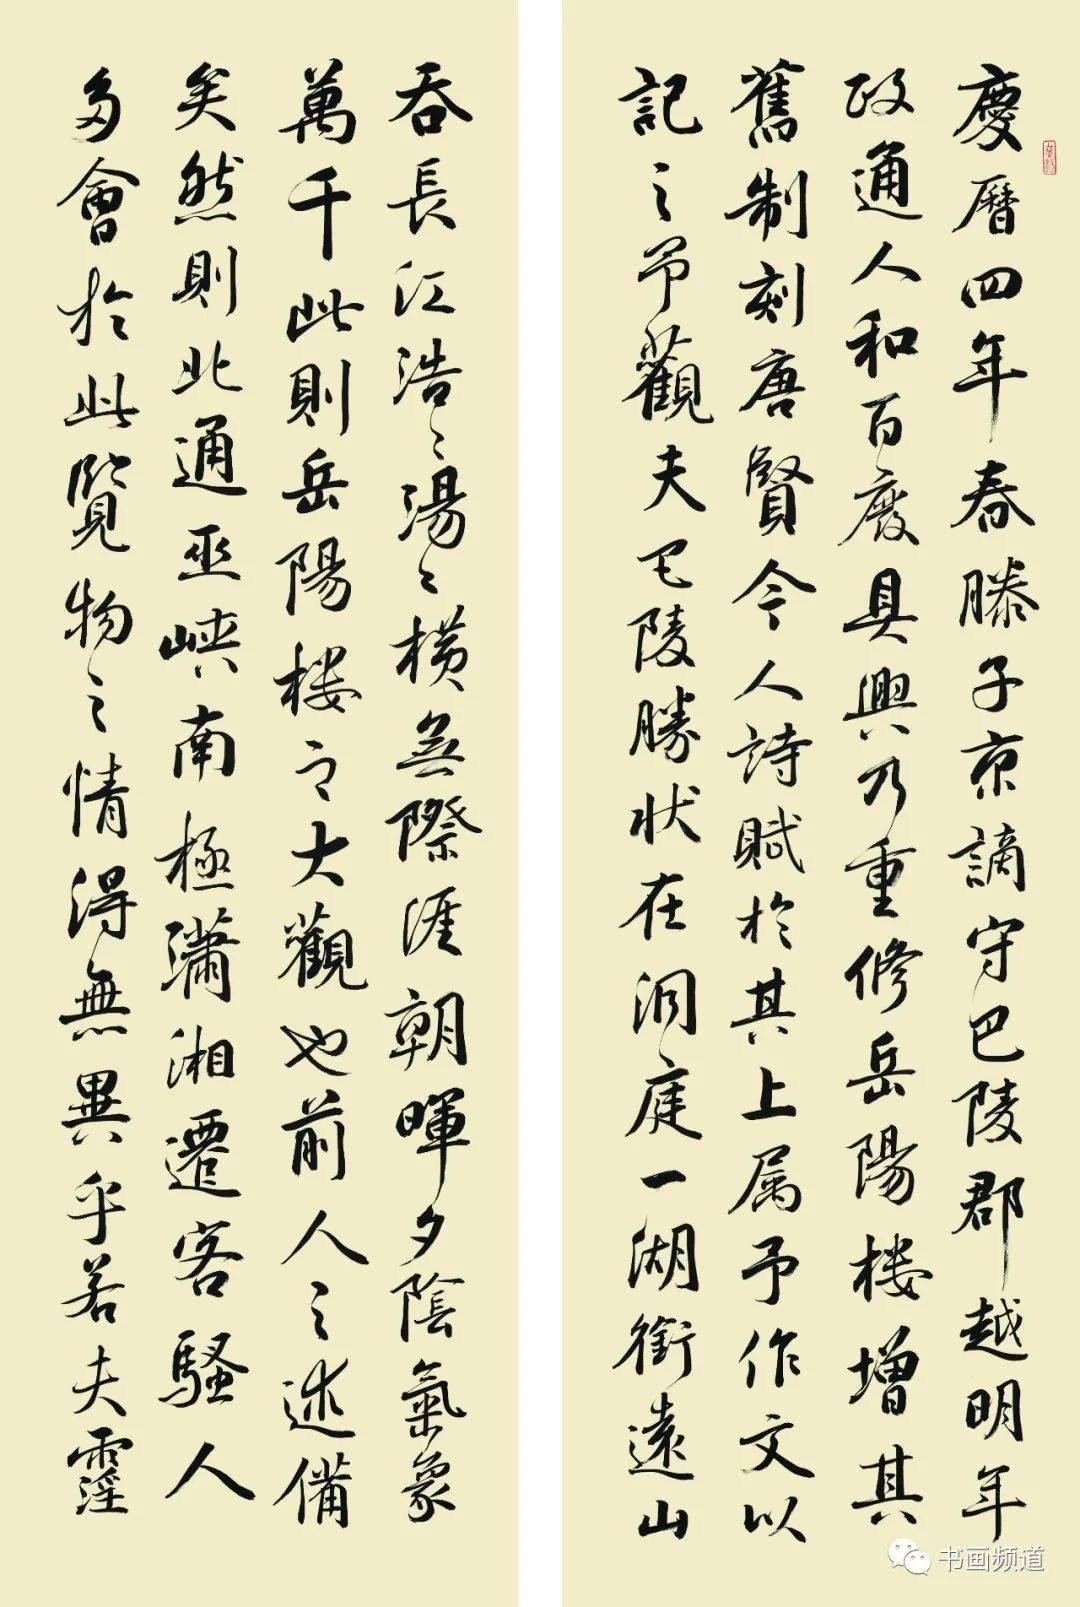 慶曆四年春滕子京謫守巴陵郡越明年
政通人和百廢具興乃重修岳陽楼增其
舊制刻唐賢今人詩賦於其上属予作文以
記之予觀夫巴陵勝状在洞庭一湖銜遠山
吞長江浩〻湯〻横無際涯朝暉夕陰氣象
萬千此則岳陽楼之大觀也前人之述備
矣然則北通巫峡南極瀟湘遷客騷人
多會於此覽物之情得無異乎若夫霪
书画频道